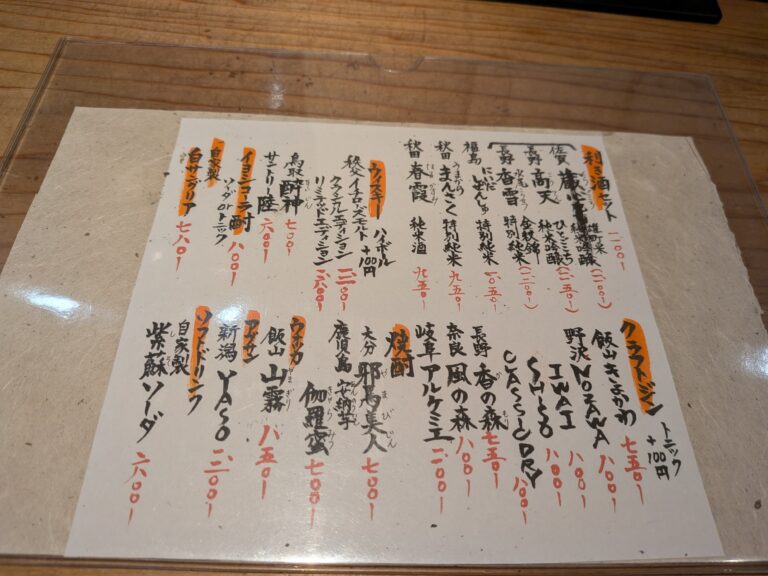 利き酒セット
佐賀 純米吟醸
長野 高天 ひとごこち 純米吟醸
長野 香雪 金紋錦 特別純米
福島 にいだしぜんしゅ 特別純米 一〇五〇ー
秋田 まんさく 特別純米 九五〇ー
秋田 春霞 純米酒 九五〇ー
ウィスキー ハイボール+100円
秩父 イチローズモルト
クラシカルエディション 一二〇〇ー
リミテッドエディション
鳥取 酔神 七〇〇ー
サントリー 陸 六〇〇ー
イヨシコーラ酎 ソーダorトニック 八〇〇ー
自家製
白サングリア 七八〇ー
クラフトジン トニック+100円
飯山 きよかわ 七五〇ー
野沢 NOZAWA 八〇〇ー
IWAI 八〇〇ー
SHISO 八〇〇ー
CLASSIC DRY 八〇〇ー
長野 香の森 七五〇ー
奈良 風の森 八〇〇ー
岐阜 アルケミエ 一二〇〇ー
焼酎
大分 邪馬美人 七〇〇ー
鹿児島 安納芋 伽羅蜜 七〇〇ー
ウォッカ
飯山 山霧 八五〇ー
アブサン
新潟 YASO 一二〇〇ー
ソフトドリンク
自家製
紫蘇ソーダ 六〇〇ー